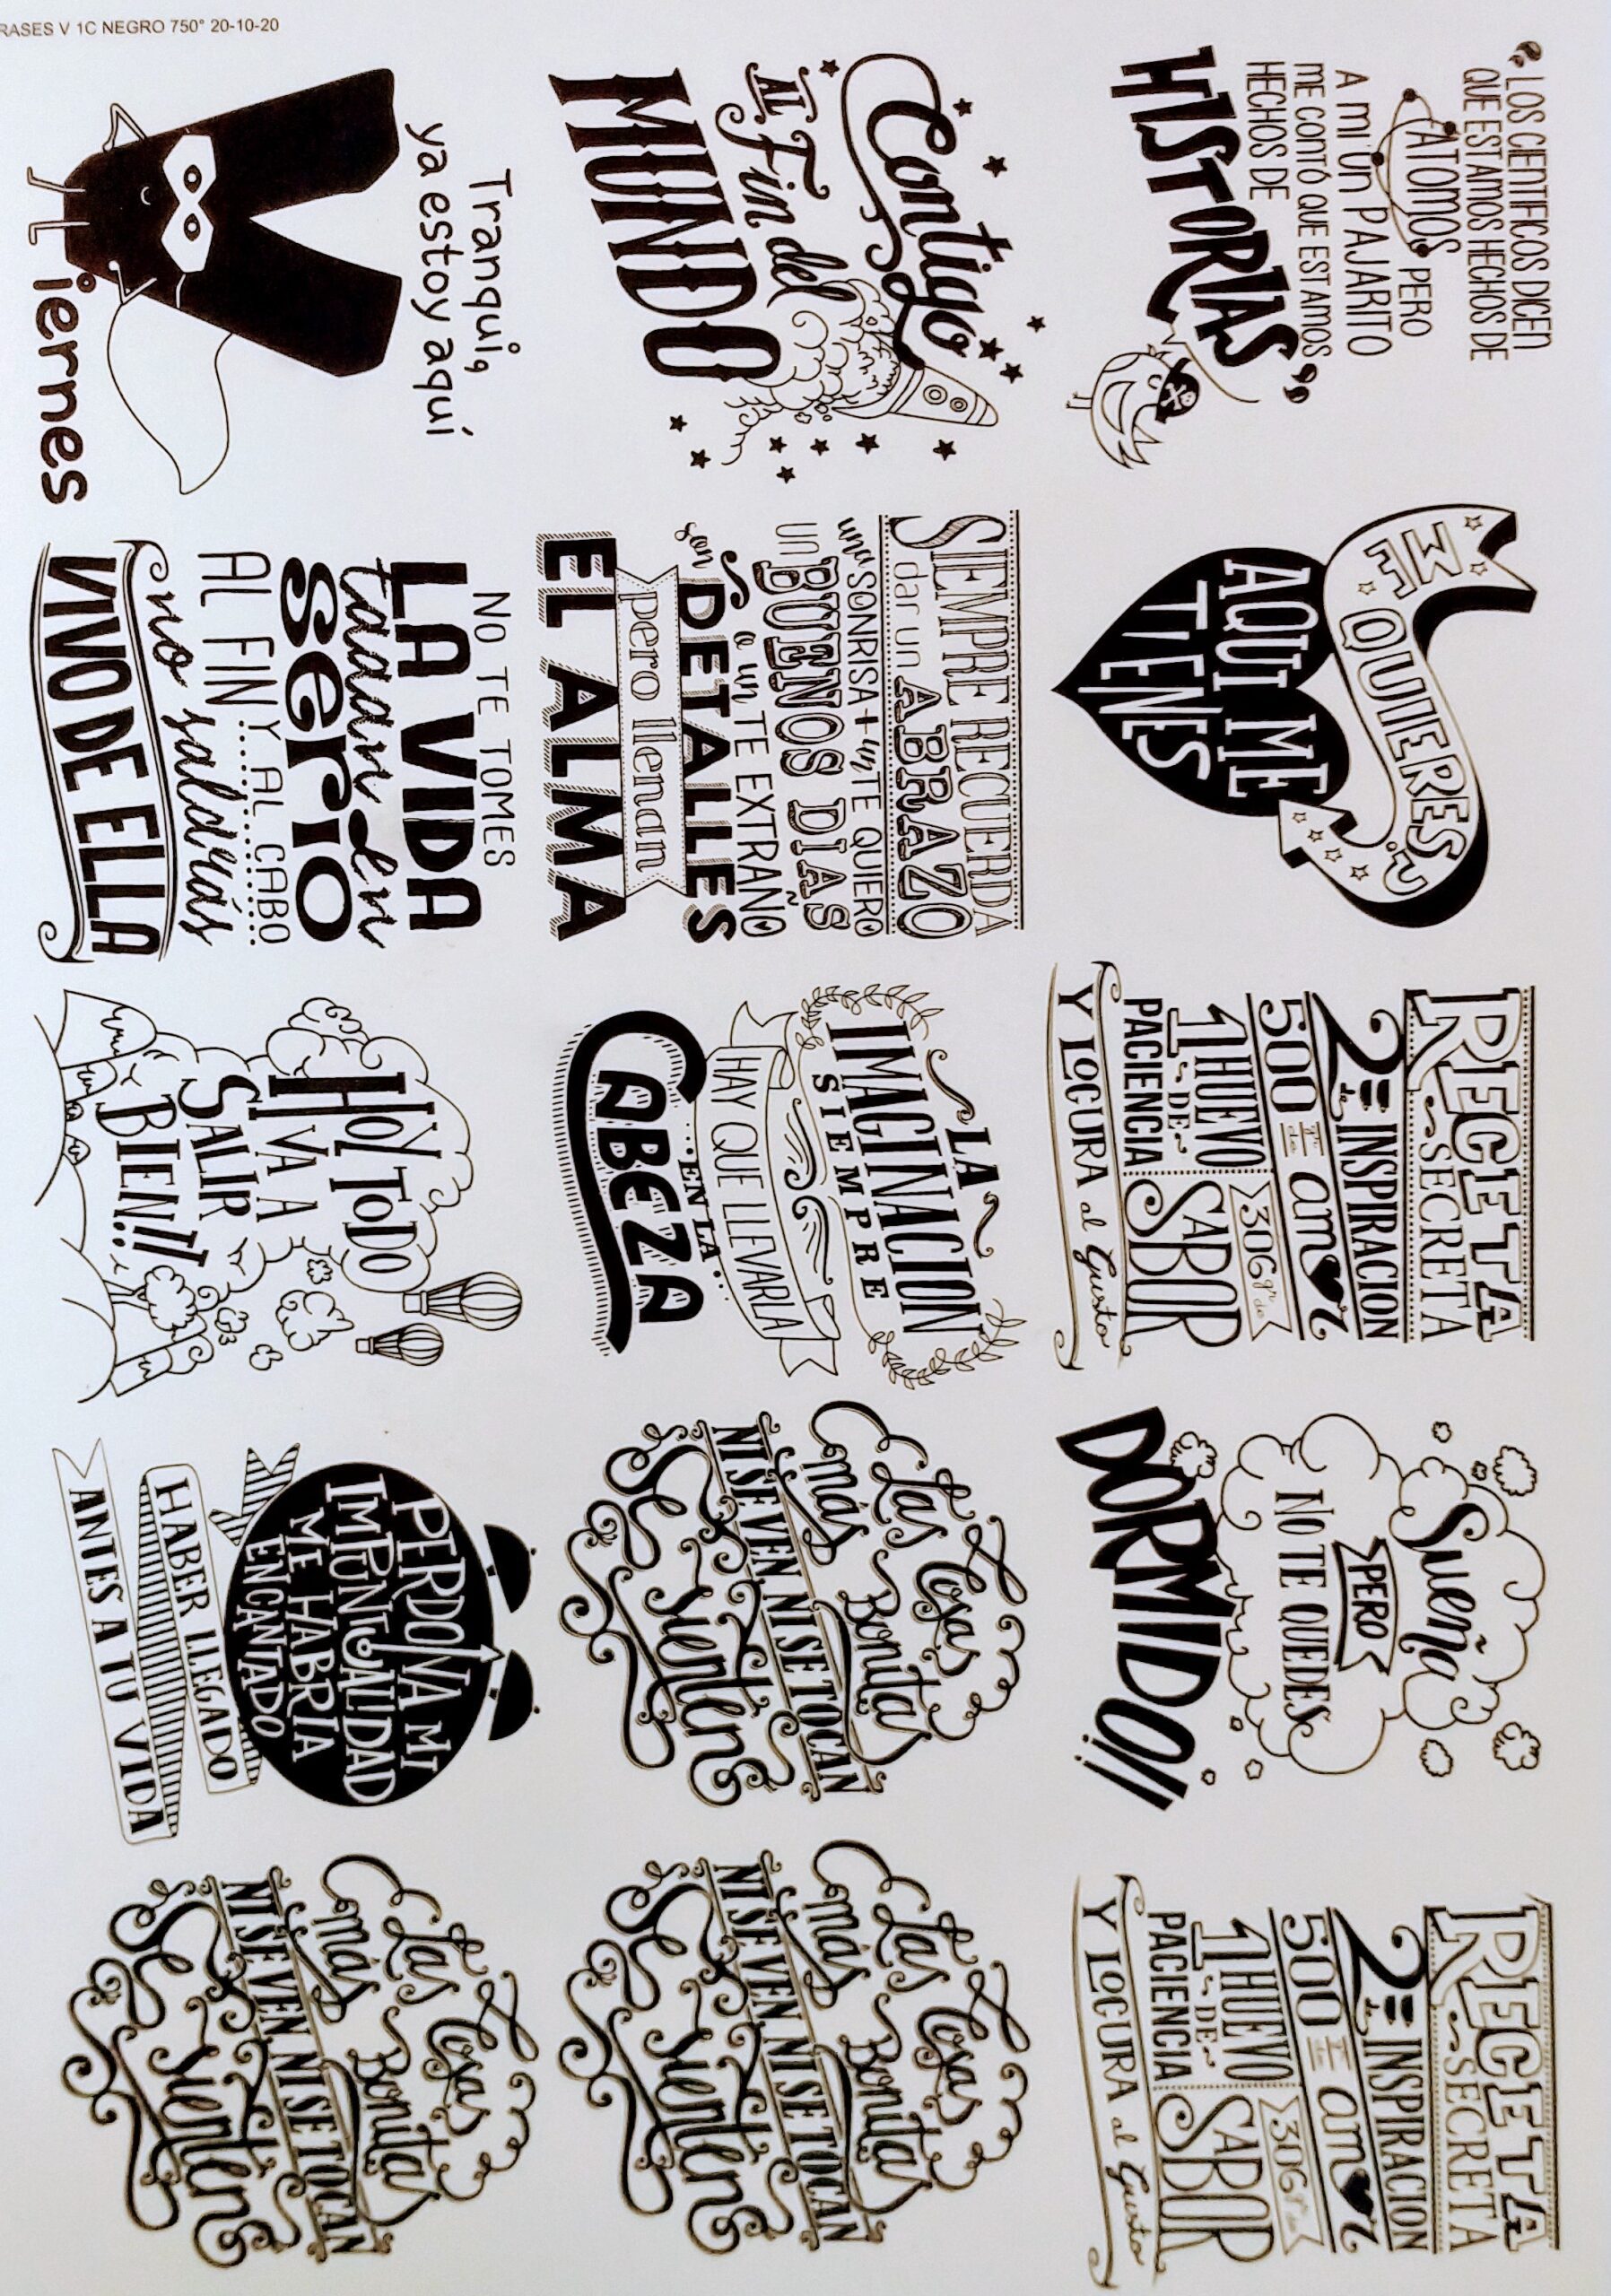 RASES V 1C NEGRO 750° 20-10-20
“LOS CIENTIFICOS DICEN
QUE ESTAMOS HECHOS DE
ATOMOS PERO
A MI UN PAJARITO
ME CONTÓ QUE ESTAMOS
HECHOS DE
HISTORIAS”
ME QUIERES?
AQUI ME
TIENES
RECETA
SECRETA
2 de INSPIRACION
500 gr de amor
1 HUEVO
DE
PACIENCIA
30G gr de
SABOR
Y LOCURA al Gusto
Sueña
PERO
NO TE QUEDES
DORMIDO!!
RECETA
SECRETA
2 de INSPIRACION
500 gr de amor
1 HUEVO
DE
PACIENCIA
30G gr de
SABOR
Y LOCURA al Gusto
Contigo
AL Fin del
MUNDO
SIEMPRE RECUERDA
dar un ABRAZO
una SONRISA + un TE QUIERO
un BUENOS DIAS
o un TE EXTRAÑO
son DETALLES
pero llenan
EL ALMA
LA
IMAGINACION
SIEMPRE
HAY QUE LLEVARLA
...EN LA...
CABEZA
Las Cosas
más Bonitas
NI SE VEN, NI SE TOCAN
Se Sienten
Las Cosas
más Bonitas
NI SE VEN, NI SE TOCAN
Se Sienten
Tranqui,
ya estoy aquí
Viernes
NO TE TOMES
LA VIDA
taaan en
serio
AL FIN Y AL CABO
no saldrás
VIVO DE ELLA
HOY TODO
VA A
SALIR
BIEN!!
PERDONA MI
IMPUNTUALIDAD
ME HABRÍA
ENCANTADO
HABER LLEGADO
ANTES A TU VIDA
Las Cosas
más Bonitas
NI SE VEN, NI SE TOCAN
Se Sienten